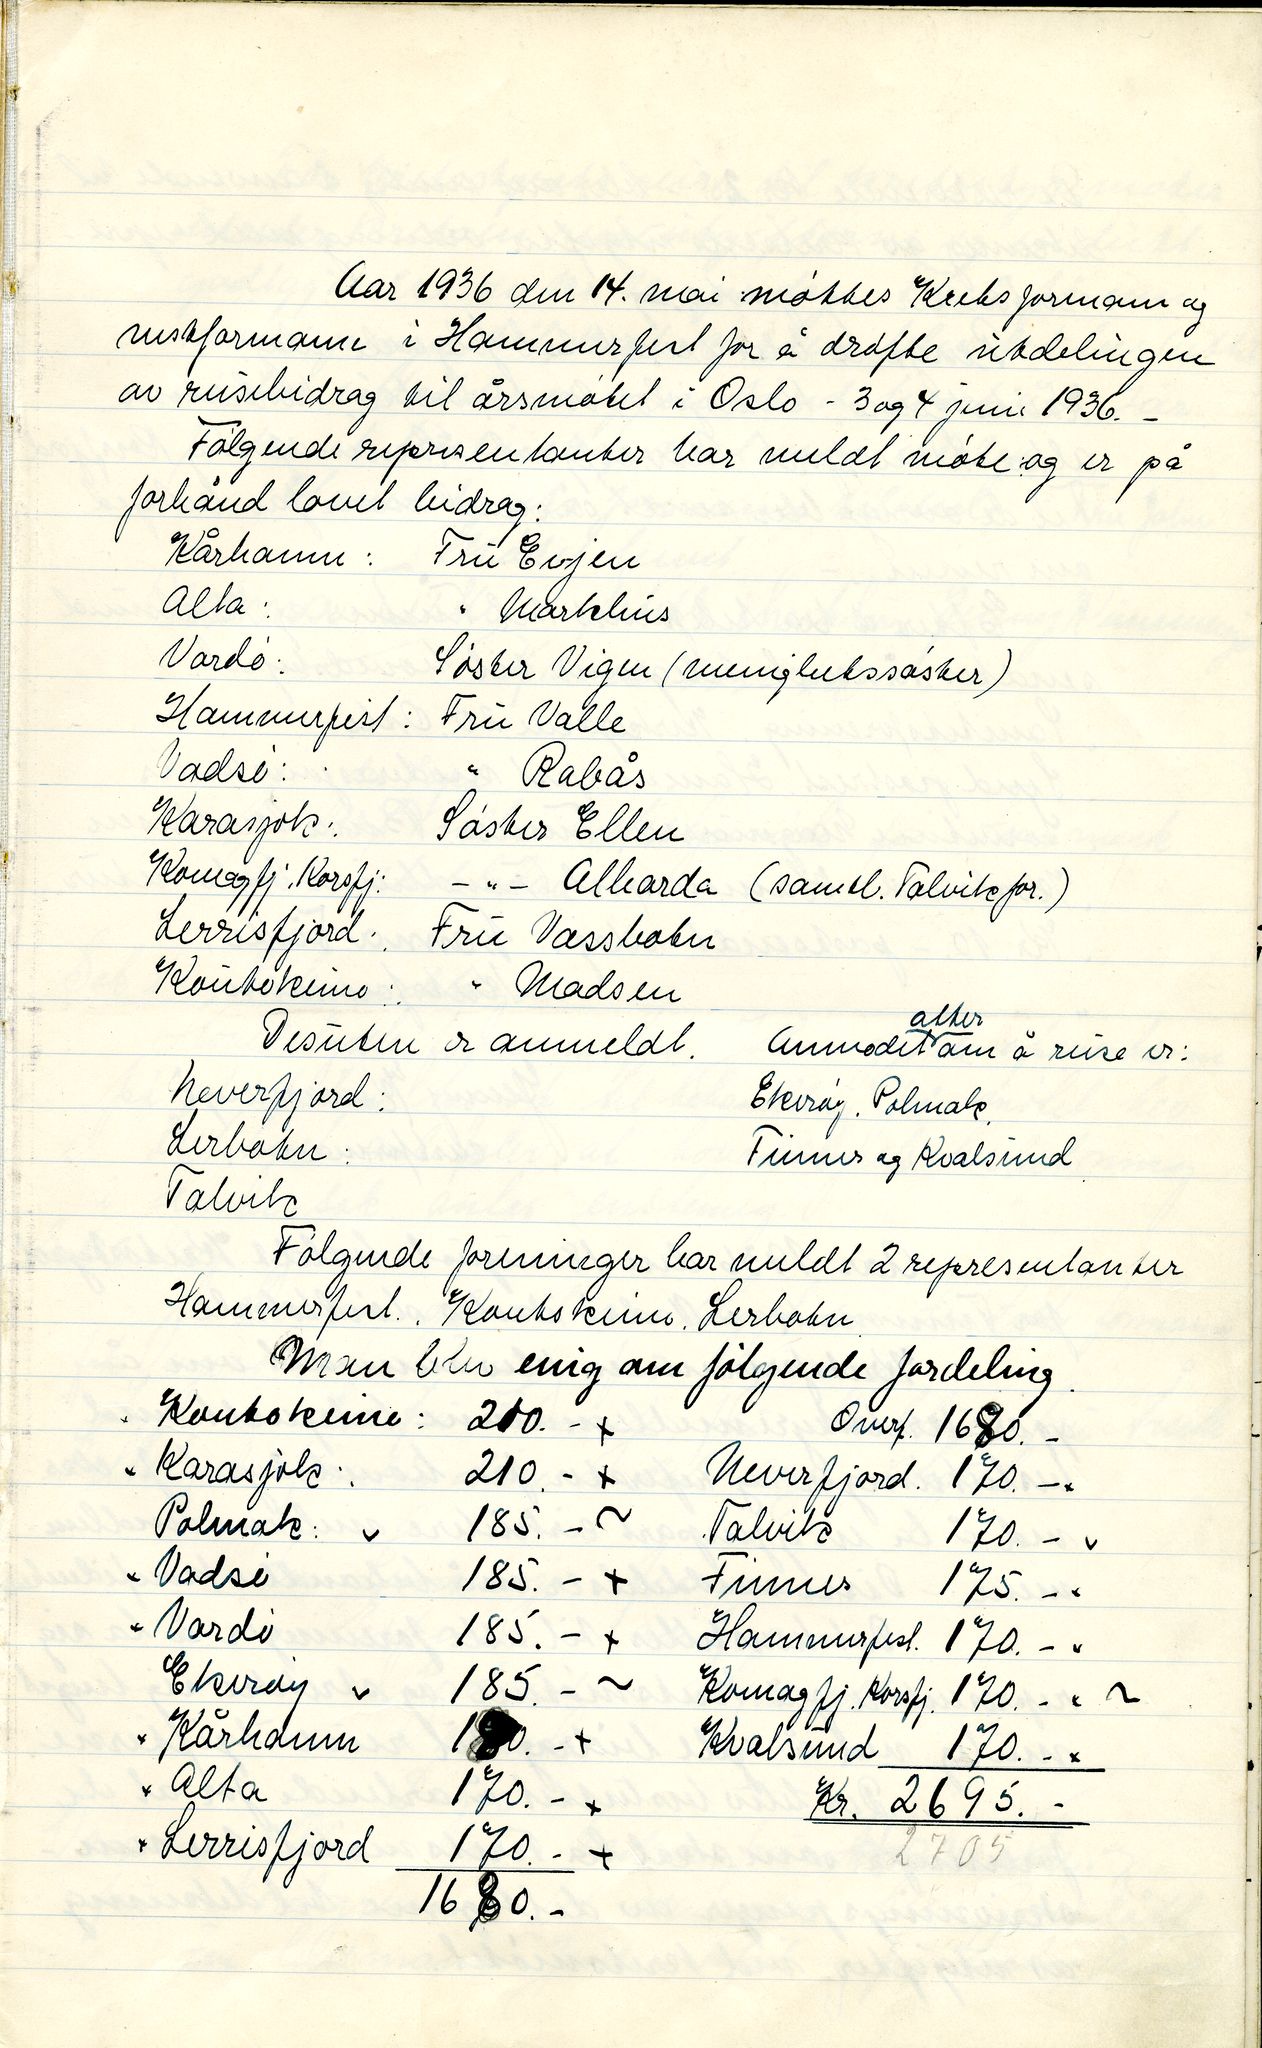 Aar 1936 den 14. mai møttes Kretsformann og
nestformann i Hammerfest for å drøfte utdelingen
av reisebidrag til årsmøtet i Oslo - 3 og 4 juni 1936. -
Følgende representanter har meldt møte og er på
forhånd lovet bidrag:
Kårhamn: Frü Evjen
Alta: " Markelius
Vardø: Søster Vigen (menighetssøster)
Hammerfest: Frü Valle
Vadsø: " Rabås
Karasjok: Søster Ellen
Komagfj. Korsfj: -"- Alharda (samtl. Talvik for.)
Lerrisfjord: Frü Vassbotn
Koutokeino: " Madsen
Desuten er anmeldt. Anmodet atter om å reise er:
Neverfjord: Ekerøy. Polmak.
Lerbotn: Finnes og Kvalsund
Talvik
Følgende foreninger har meldt 2 representanter
Hammerfest. Koutokeino. Lerbotn
Man blev enig om følgende fordeling.
Koutokeino: 210. - + Overf. 1680. -
Karasjok: 210. - + Neverfjord. 170. -
Polmak: v 185. - ~ Talvik 170. - v
Vadsø 185. - + Finnes 175. -
Vardø 185. - + Hammerfest. 170. -
Ekerøy v 185. - ~ Komagfj. Korsfj. 170. - ~
Kårhamn 180. - + Kvalsund 170. -
Alta 170. - + Kr. 2695. -
Lerrisfjord 170. - + 2705
1680. -